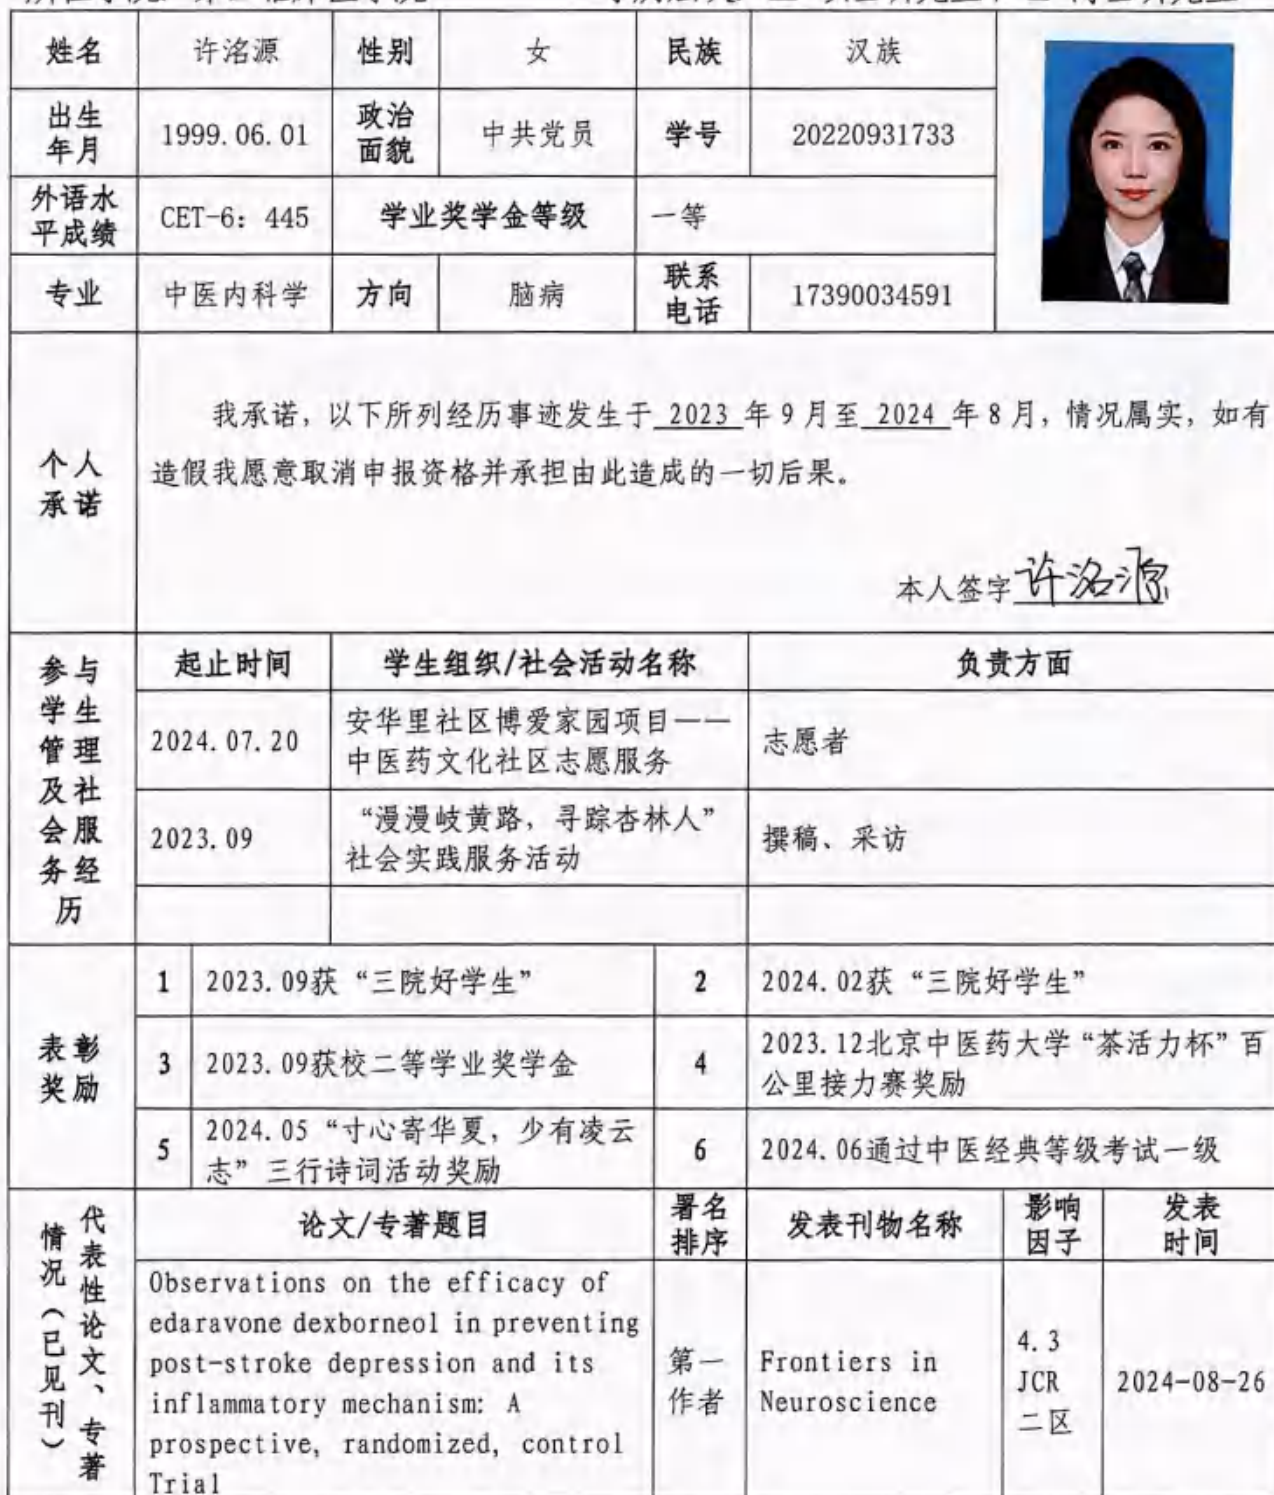 姓名 许洺源 性别 女 民族 汉族
出生年月 1999.06.01 政治面貌 中共党员 学号 20220931733
外语水平成绩 CET-6: 445 学业奖学金等级 一等
专业 中医内科学 方向 脑病 联系电话 17390034591
个人承诺
我承诺，以下所列经历事迹发生于 2023 年 9 月至 2024 年 8 月，情况属实，如有
造假我愿意取消申报资格并承担由此造成的一切后果。
本人签字 许洺源
参与学生管理及社会服务经历
起止时间 学生组织/社会活动名称 负责方面
2024.07.20 安华里社区博爱家园项目——
中医药文化社区志愿服务 志愿者
2023.09 “漫漫岐黄路，寻踪杏林人”
社会实践服务活动 撰稿、采访
表彰奖励
1 2023.09获“三院好学生” 2 2024.02获“三院好学生”
3 2023.09获校二等学业奖学金 4 2023.12北京中医药大学“茶活力杯”百
公里接力赛奖励
5 2024.05“寸心寄华夏，少有凌云
志”三行诗词活动奖励 6 2024.06通过中医经典等级考试一级
代表性论文、专著情况（已见刊）
论文/专著题目 署名排序 发表刊物名称 影响因子 发表时间
Observations on the efficacy of
edaravone dexborneol in preventing
post-stroke depression and its
inflammatory mechanism: A
prospective, randomized, control
Trial
第一作者
Frontiers in
Neuroscience
4.3
JCR
二区
2024-08-26